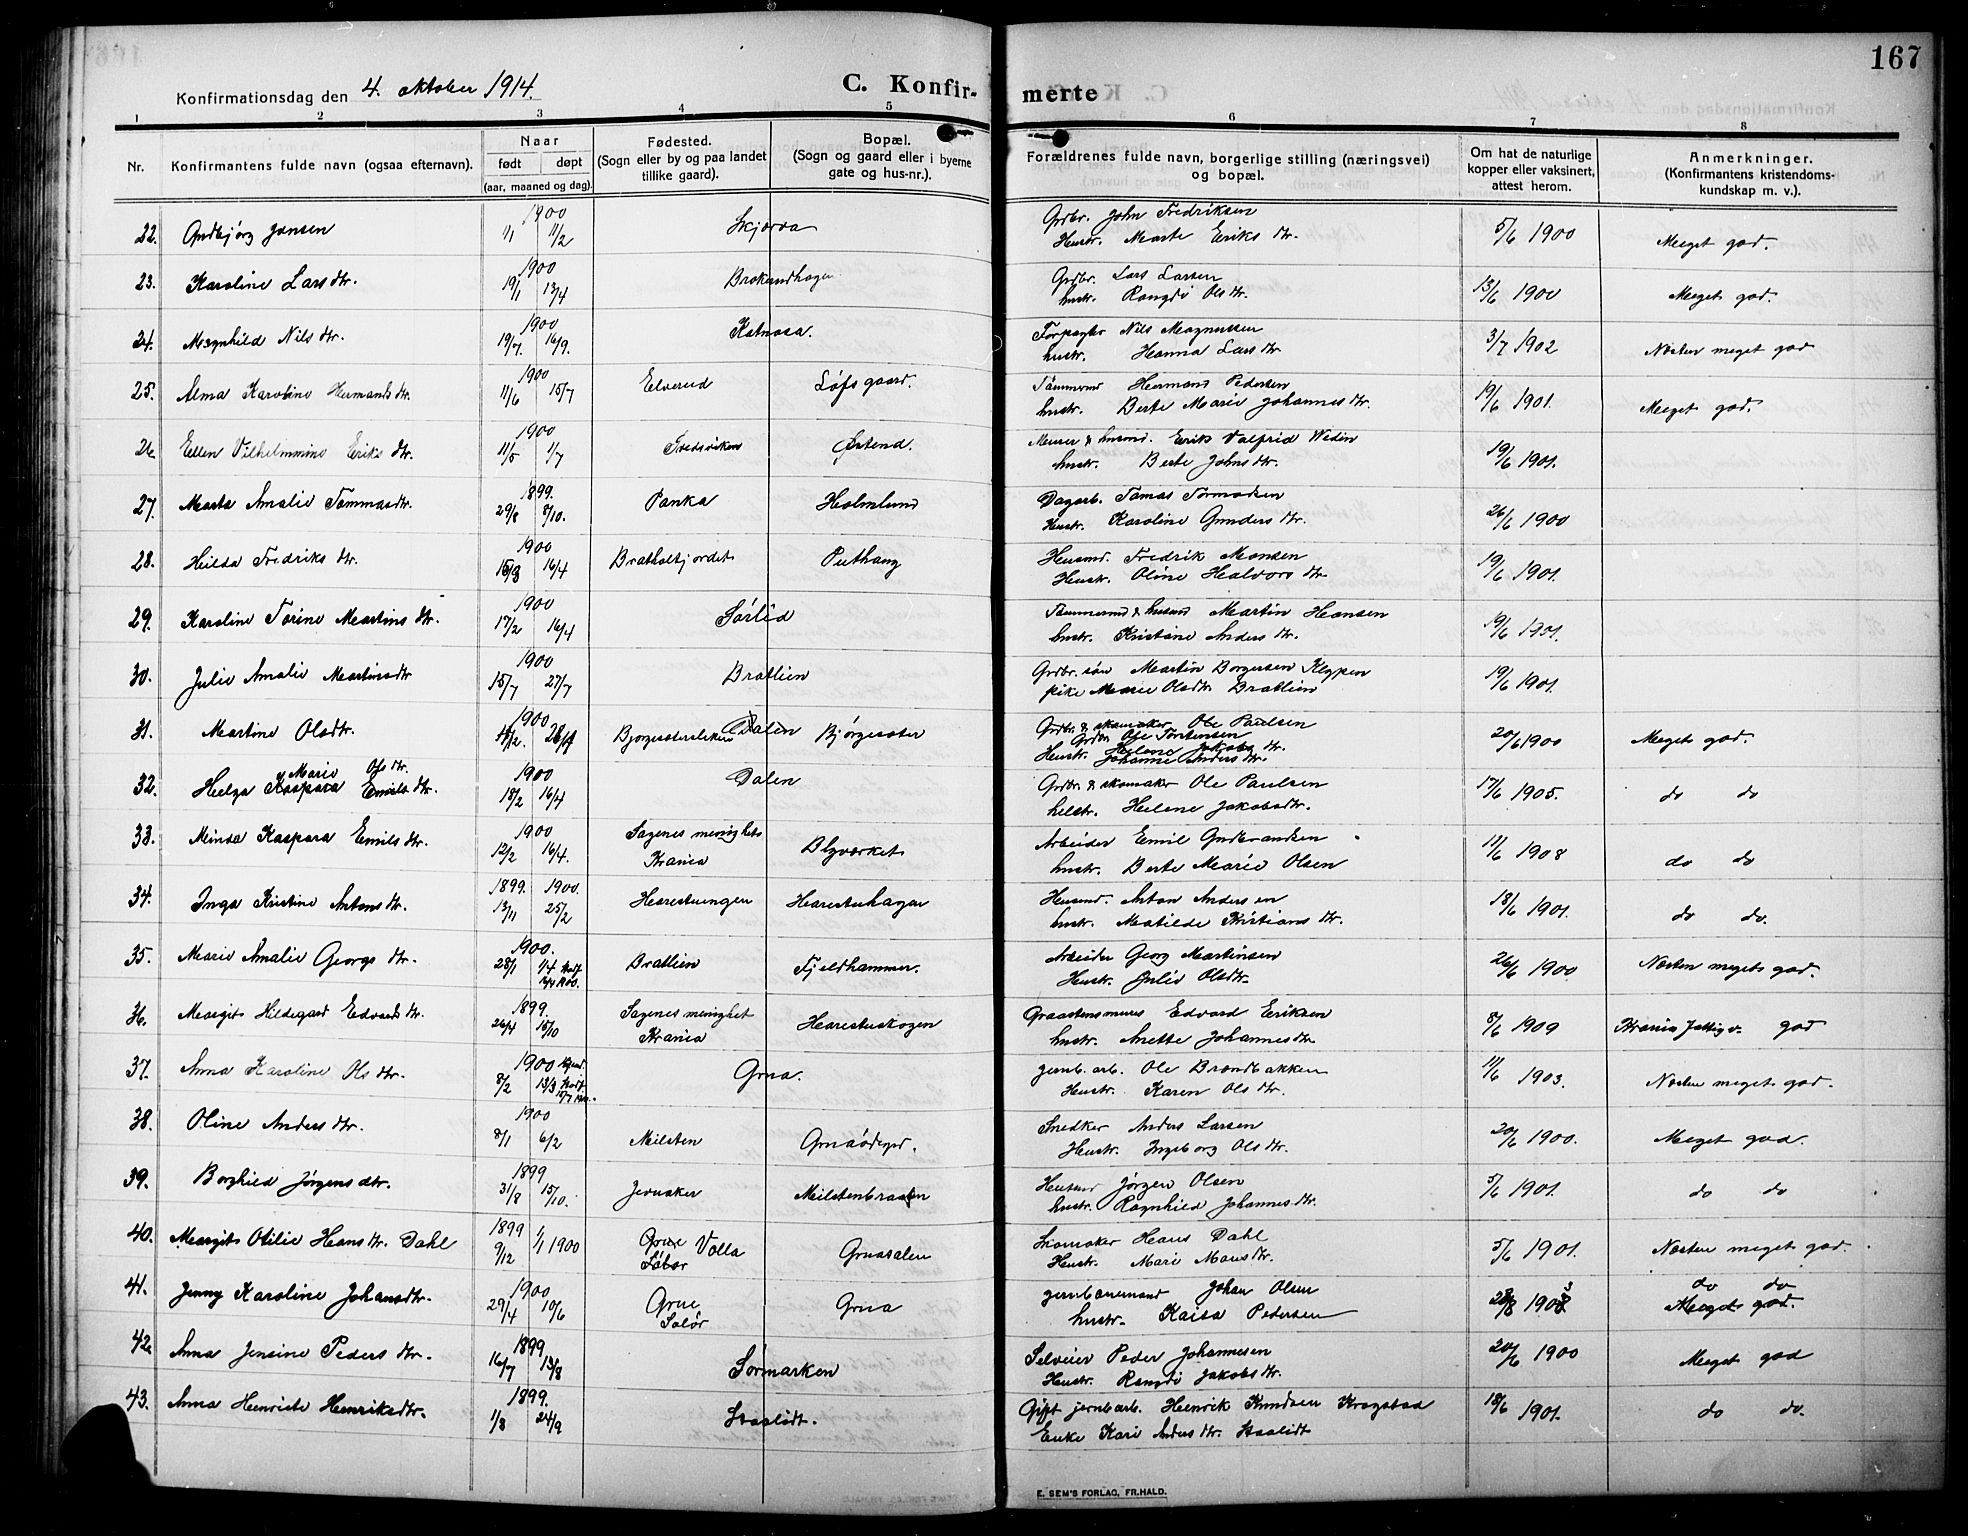 167
Konfirmationsdag den 4. oktober 1914.
C. Konfir-
merte
1 2 3 4 5 6 7 8
Nr. Konfirmantens fulde navn (ogsaa efternavn).
Naar
født døpt
(aar, maaned og dag).
Fødested.
(Sogn eller by og paa landet
tillike gaard).
Bopæl.
(Sogn og gaard eller i byerne
gate og hus-nr.).
Forældrenes fulde navn, borgerlige stilling (næringsvei)
og bopæl.
Om hat de naturlige
kopper eller vaksinert,
attest herom.
Anmerkninger.
(Konfirmantens kristendoms-
kundskap m. v.).
1900
22. Gudbjørg Jonsen 1/1 11/2 Skjerva
Grdbr. John Fredriksen
Hustr. Marte Eriks dtr. 5/6 1900 Meget god.
1900
23. Karoline Lars dtr. 19/1 13/4
Grdbr. Lars Larsen
hustr. Rangdi Ols dtr. 13/6 1900 Meget god.
1900
24. Magnhild Nils dtr. 19/7. 16/9. Katnosa.
Forpagter Nils Magnussen
hustr. Hanna Lars dtr 3/7 1902 Næsten meget god
1900
25. Alma Karoline Hermands dtr. 11/6 15/7 Elverud Løfsgaard.
Tømmermd Hermand Pedersen
hustr. Berte Marie Johannes dtr. 19/6 1901. Meget god.
1900
26 Ellen Vilhelmmine Eriks dtr. 11/5 1/7 Fredsviken Østend.
Murer & husmd. Erik Valfrid Wedin
hustr. Berte Johns dtr. 19/6 1901.
1899.
27. Marta Amalie Tommasdtr. 29/8 8/10. Panka Holmlund
Dagarb. Tomas Tormodsen
Hustr. Karoline Gunders dtr. 26/6 1900
1900
28. Hilda Fredriks dtr. 16/4 BratholtjordetPuthaug
Husmd. Fredrik Monsen
Hustr. Oline Halvors dtr 19/6 1901.
1900
29. Karoline Torine Martins dtr. 17/2 16/4 Sørlid
Tømmermd & husmd Martin Hansen
hustr. Kristine Anders dtr. 19/6 1901.
1900
30. Julie Amalie Martinsdtr 15/7 27/7 Bratlien
Grdbr. søn Martin Borgersen Klypen
pike Marie Olsdtr Bratlien 19/6 1901.
1900
31. Martine Olsdtr. Dalen Bjørgeseter
Grdbr. & skomaker Ole Paulsen
Grdbr. Ole Torstensen
Helene Jakobs dtr.
Hustr. Johanne Anders dtr. 20/6 1900 Meget god.
Marie Ols dtr. 1900
32. Helga Kaspara Emils dtr. 18/2 16/4 Dalen
Grdbr & skomaker Ole Paulsen
Helene Jakobsdtr. 17/6 1905. do do
1900
33. Minda Kaspara Emils dtr. 12/2 16/4. Sagenes menighet
Krania Blyværket
Arbeider Emil Gulbrandsen
hustr. Berte Marie Olsen 11/6 1908 do do
1899. 1900.
34. Inga Kristine Antons dtr. 13/11 25/2 Harestuengen Harestuhagen
Husmd. Anton Andersen
hustr. Matilde Kristians dtr. 18/6 1901. do do.
1900.
35. Marie Amalie Georgs dtr. 28/1 1/4 Bratlien Fjeldhammer.
Arbeider Georg Martinsen
Hustr. Julie Olsdtr. 26/6 1900 Næsten meget god.
1899.
36. Margit Hildegard Edvards dtr. 26/4 15/10 Sagenes menighet
Krania Harestuskogen
Graastensmurer Edvard Eriksen
hustr. Anette Johannesdtr. 8/6 1909 god
1900
37. Anna Karoline Ols dtr. 8/2 13/3 Grua.
jernb. arb. Ole Brandbakken
Hustr. Karen Ols dtr. 11/6 1903. Næsten meget god.
1900
38. Oline Anders dtr. 8/1 6/2 Milsten Gruaødegrd.
Snedker Anders Larsen
Hustr. Ingeborg Ols dtr. 20/6 1900. Meget god.
1899
39. Borghild Jørgens dtr. 31/8 15/10. Jevnaker Milstenbraaten
Husmd Jørgen Olsen
hustr. Ragnhild Johannes dtr. 5/6 1901. do do
1899
40. Margit Otilie Hans dtr. Dahl 9/12 1/1 1900 Grue Volla
Solør Gruadalen
Skomaker Hans Dahl
Hustr. Mari Mons dtr. 5/6 1901. Næsten meget god.
1900
41. Jenny Karoline Johansdtr. 29/4 10/6 Grue
Solør Grua
jernbanemand Johan Olsen
hustr. Kaisa Pedersen do do
Meget god.
1899
42. Anna Jensine Peders dtr. 16/7 13/8 Sørmarken
Selveier Peder Johannesen
Hustr. Rangdi Jakobs dtr. 20/6 1900 Meget god
1899.
43. Anna Henriete Henriksdtr. 1/8 24/9 Staalidt.
Gift jernb.arb. Henrik Knudsen Kragstad
Enke Kari Anders dtr. Staalidt 18/6 1901. do do.
E. SEM'S FORLAG, FR.HALD.